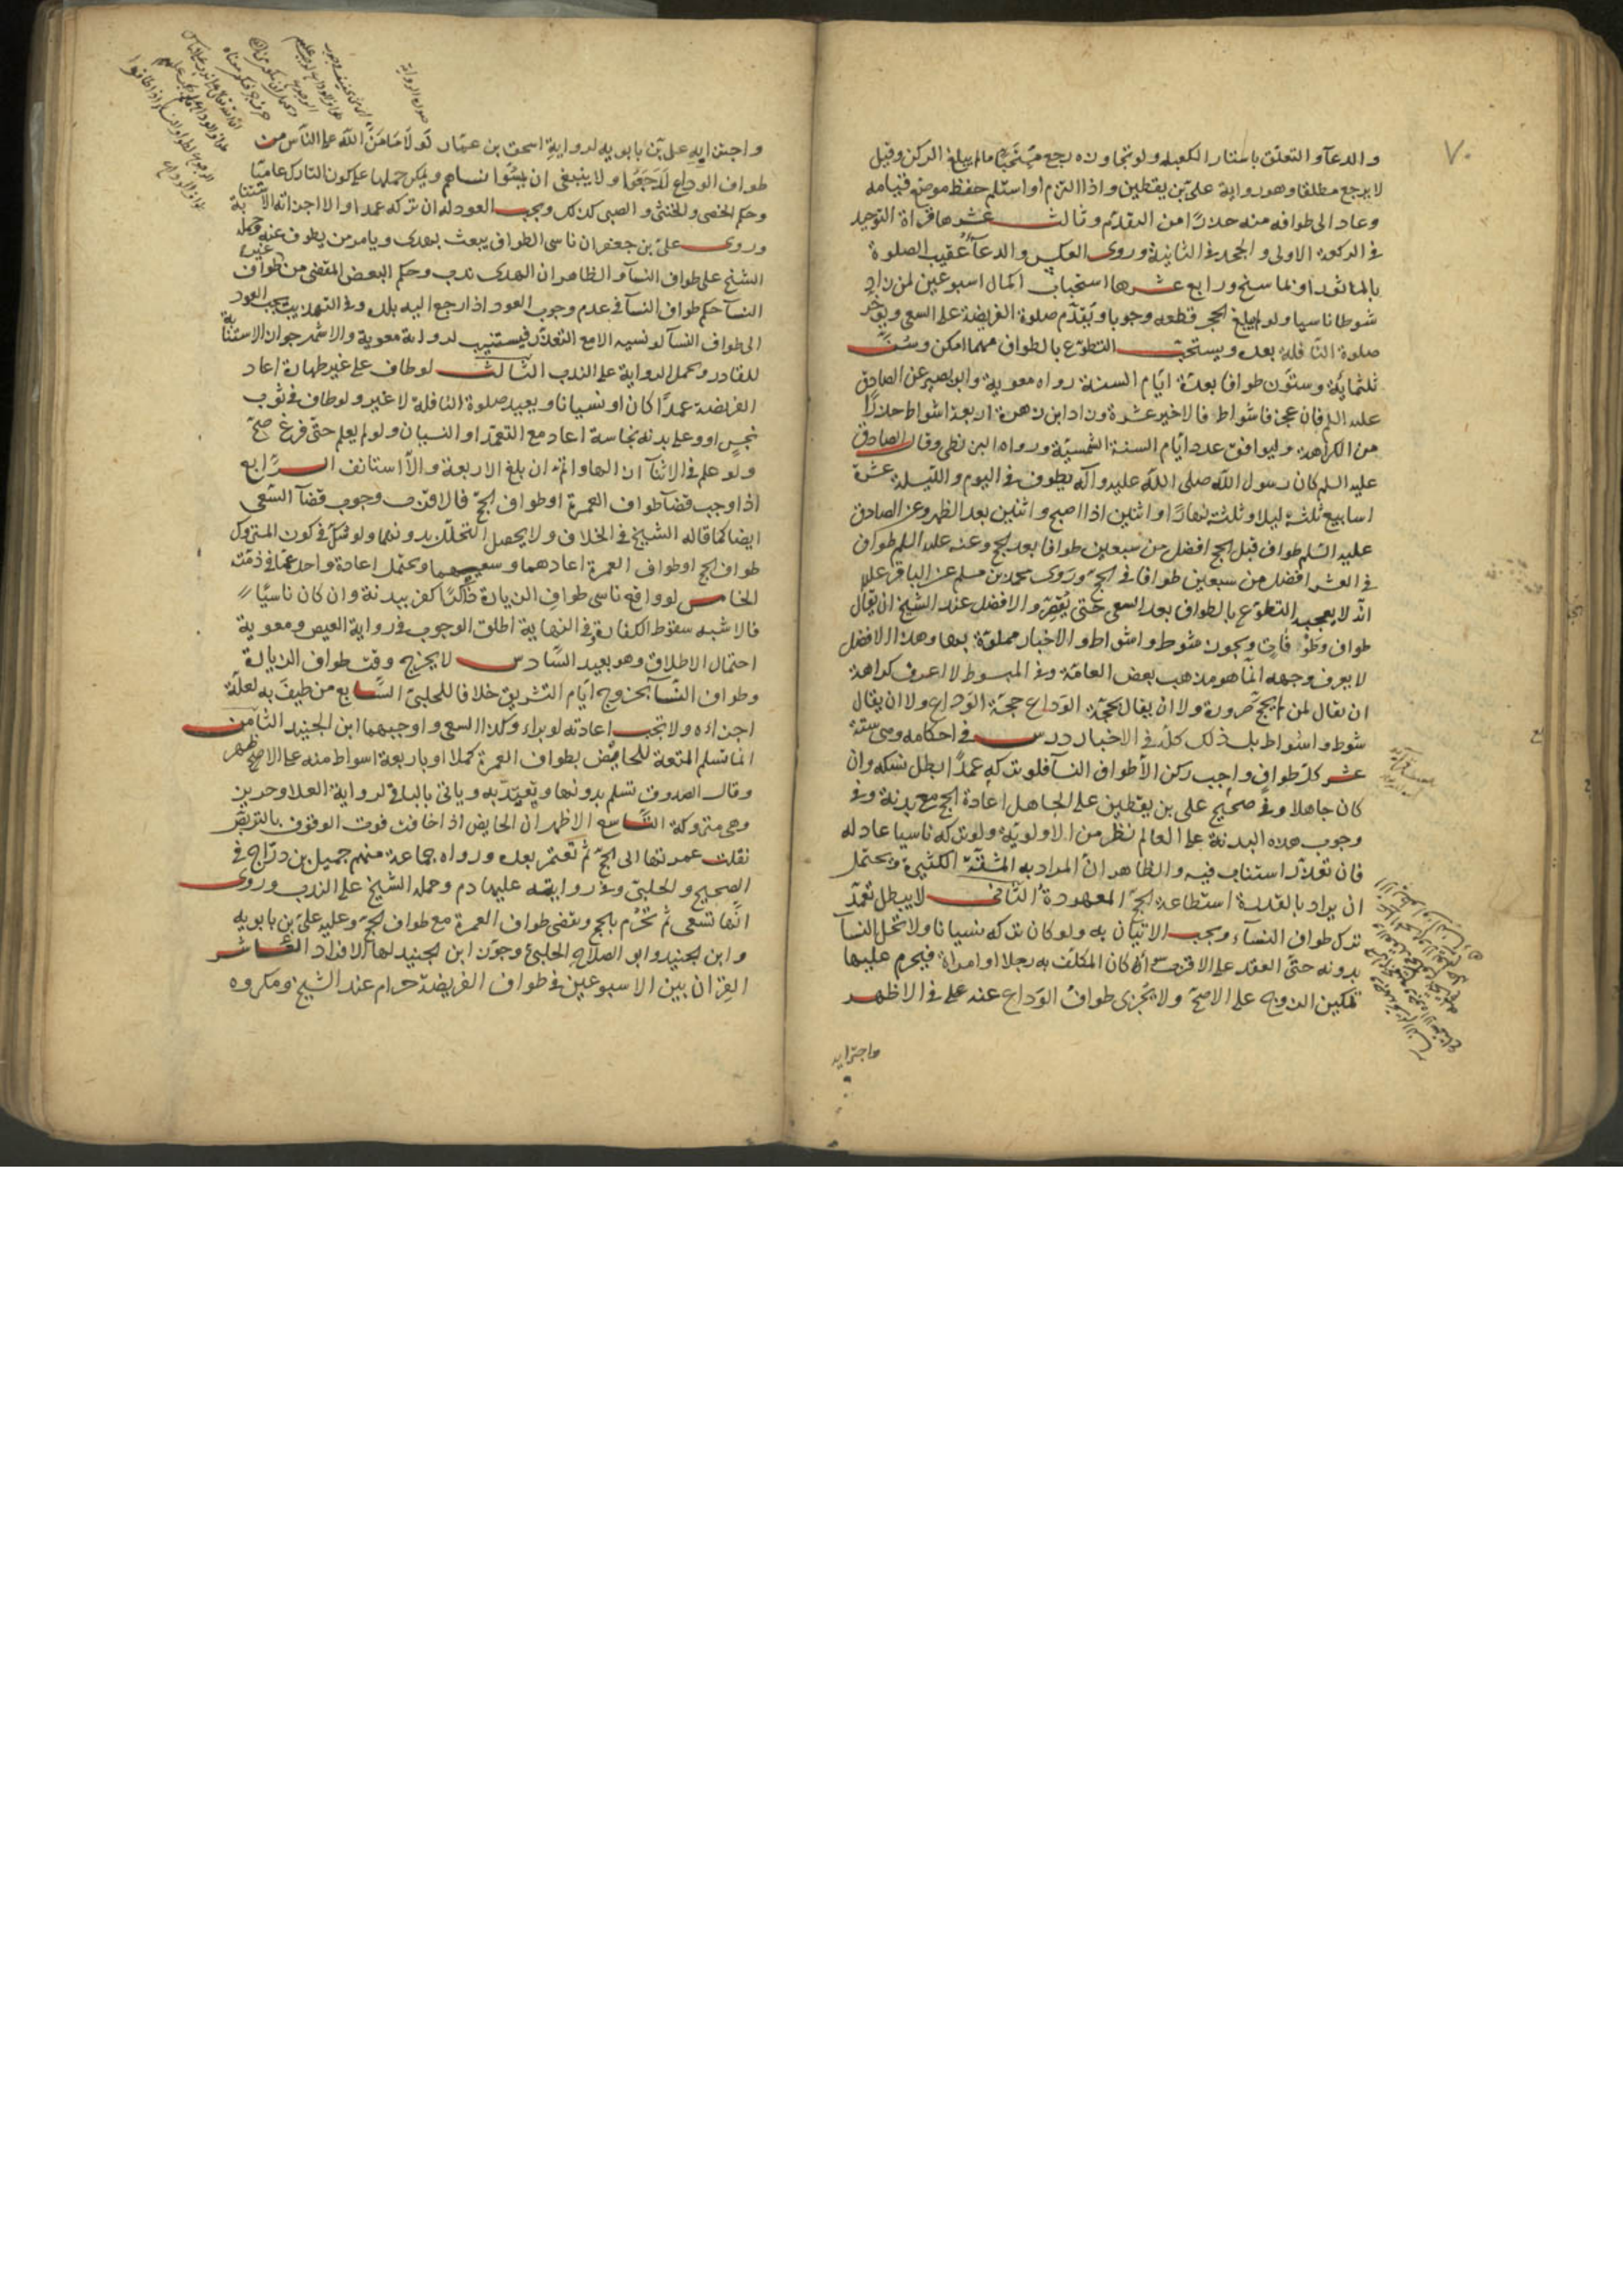 ٧٠
والدعآء والتعلق باستار الكعبة ولو تجاوزه رجع مستحبا مالم يبلغ الركن وقيل
لا يرجع مطلقا وهو رواية علي بن يقطين واذا التزم او استلم حفظ موضع قيامه
وعاد الى طوافه منه حذرا من التقدم وثالث عشرها قراة التوحيد
في الركعة الاولى والجحد في الثانية وروى العكس والدعآء عقيب الصلوة
بالماثور او بما سنح ورابع عشرها استحباب اكمال اسبوعين لمن زاد
شوطا ناسيا ولو لم يبلغ الحجر قطعه وجوبا ويقدم صلوة الفريضة على السعي ويؤخر
صلوة النافلة بعده ويستحب التطوع بالطواف مهما امكن وسن
ثلثمائة وستون طوافا بعدة ايام السنة رواه معوية وابو بصير عن الصادق
عليه السلم فان عجز فاشواط فالاخير عشرة وزاد ابن زهرة اربعة اشواط حذرا
من الكراهة وليوافق عدد ايام السنة الشمسية ورواه البزنطي وقال الصادق
عليه السلم كان رسول الله صلى الله عليه وآله يطوف في اليوم والليلة عشرة
اسابيع ثلثة ليلا وثلثة نهارا واثنين اذا اصبح واثنين بعد الظهر وعن الصادق
عليه السلم طواف قبل الحج افضل من سبعين طوافا بعد الحج وعنه عليه السلم طواف
في العشر افضل من سبعين طوافا في الحج وروى محمد بن مسلم عن الباقر عللا
انه لا يعجبه التطوع بالطواف بعد السعي حتى يقصر والافضل عند الشيخ ان يقال
طواف وطوافان ويجوز شوط واشواط والاخبار مملوة بهما وهذا الافضل
لا يعرف وجهه انما هو مذهب بعض العامة وفي المبسوط لا اعرف كراهة
ان يقال لمن لم يحج صرورة ولا ان يقال لحجة الوداع حجة الوداع ولا ان يقال
شوط واشواط بل ذلك كله في الاخبار درس في احكامه وهي ستة
عشر كل طواف واجب ركن الا طواف النسآ فلو تركه عمدا ابطل نسكه وان
كان جاهلا وفي صحيح علي بن يقطين على الجاهل اعادة الحج مع بدنة وفي
وجوب هذه البدنة على العالم نظر من الاولوية ولو تركه ناسيا عاد له
فان تعذر استناب فيه والظاهر ان المراد به المشقة الكثيرة ويحتمل
ان يراد بالقدرة استطاعة الحج المعهودة الثاني لا يبطل بتعمد
ترك طواف النساء ويجب الاتيان به ولو كان تركه نسيانا ولا تحل النسآ
بدونه حتى العقد على الاقرب ان كان المكلف به رجلا او امراة فيحرم عليها
تمكين الزوج على الاصح ولا يجزى طواف الوداع عنه على في الاظهر
واجتزايه
صورة الرواية
واجتزايه علي بن بابويه لرواية اسحق بن عمار لولا ما من الله على الناس من
طواف الوداع لرجعوا ولا ينبغي ان يمسوا نساهم ويمكن حملها على كون التارك عاميا
وحكم الخصي والخنثى والصبي كذلك ويجب العود له ان تركه عمدا والا اجزاته الاستنابة
وروى علي بن جعفر ان ناسي الطواف يبعث بهدى ويامر من يطوف عنه وحمله
الشيخ على طواف النسآ والظاهر ان الهدى ندب وحكم البعض المقضى من طواف غيره
النسآ حكم طواف النسآ في عدم وجوب العود اذا رجع الى بلده وفي التهذيب يجب العود
الى طواف النسآ لو نسيه الا مع التعذر فيستنيب لرواية معوية والاشهر جواز الاستنابة
للقادر وتحمل الرواية على الندب الثالث لو طاف على غير طهارة اعاد
الفريضة عمدا كان او نسيانا ويعيد صلوة النافلة لا غير ولو طاف في ثوب
نجس او وعلى بدنه نجاسة اعاد مع التعمد او النسيان ولو لم يعلم حتى فرغ صح
ولو علم في الاثنآ ازالها واتم ان بلغ الاربعة والا استانف الرابع
اذا وجب قضآ طواف العمرة او طواف الحج فالاقرب وجوب قضآ السعي
ايضا كما قاله الشيخ في الخلاف ولا يحصل التحلل بدونهما ولو شك في كون المتروك
طواف الحج او طواف العمرة اعادهما وسعيهما ويحتمل اعادة واحد عما في ذمته
الخامس لو واقع ناسى طواف الزيارة ذاكرا كفر ببدنة وان كان ناسيا
فالاشبه سقوط الكفارة وفي النهاية اطلق الوجوب في رواية العيص ومعوية
احتمال الاطلاق وهو بعيد السادس لا يخرج وقت طواف الزيارة
وطواف النسآ بخروج ايام التشريق خلافا للحلبي السابع من طيف به لعلة
اجزاه ولا تجب اعادته لو براء وكذا السعي واوجبهما ابن الجنيد الثامن
انما تسلم المتعة للحائض بطواف العمرة كملا او باربعة اشواط منه على الاصح
وقال الصدوق تسلم بدونها ويعتد به وياتي بالباقي لرواية العلا وحريز
وهي متروكة التاسع الاظهر ان الحايض اذا خافت فوت الوقوف بالتربص
نقلت عمرتها الى الحج ثم تعتمر بعده ورواه جماعة منهم جميل بن دراج في
الصحيح والحلبي وفي روايته عليها دم وحمله الشيخ على الندب وروى
انها تسعى ثم تحرم بالحج وتقضى طواف العمرة مع طواف الحج وعليه علي بن بابويه
وابن الجنيد وابو الصلاح الحلبي وجوز ابن الجنيد لها الافراد العاشر
القران بين الاسبوعين في طواف الفريضة حرام عند الشيخ ومكروه